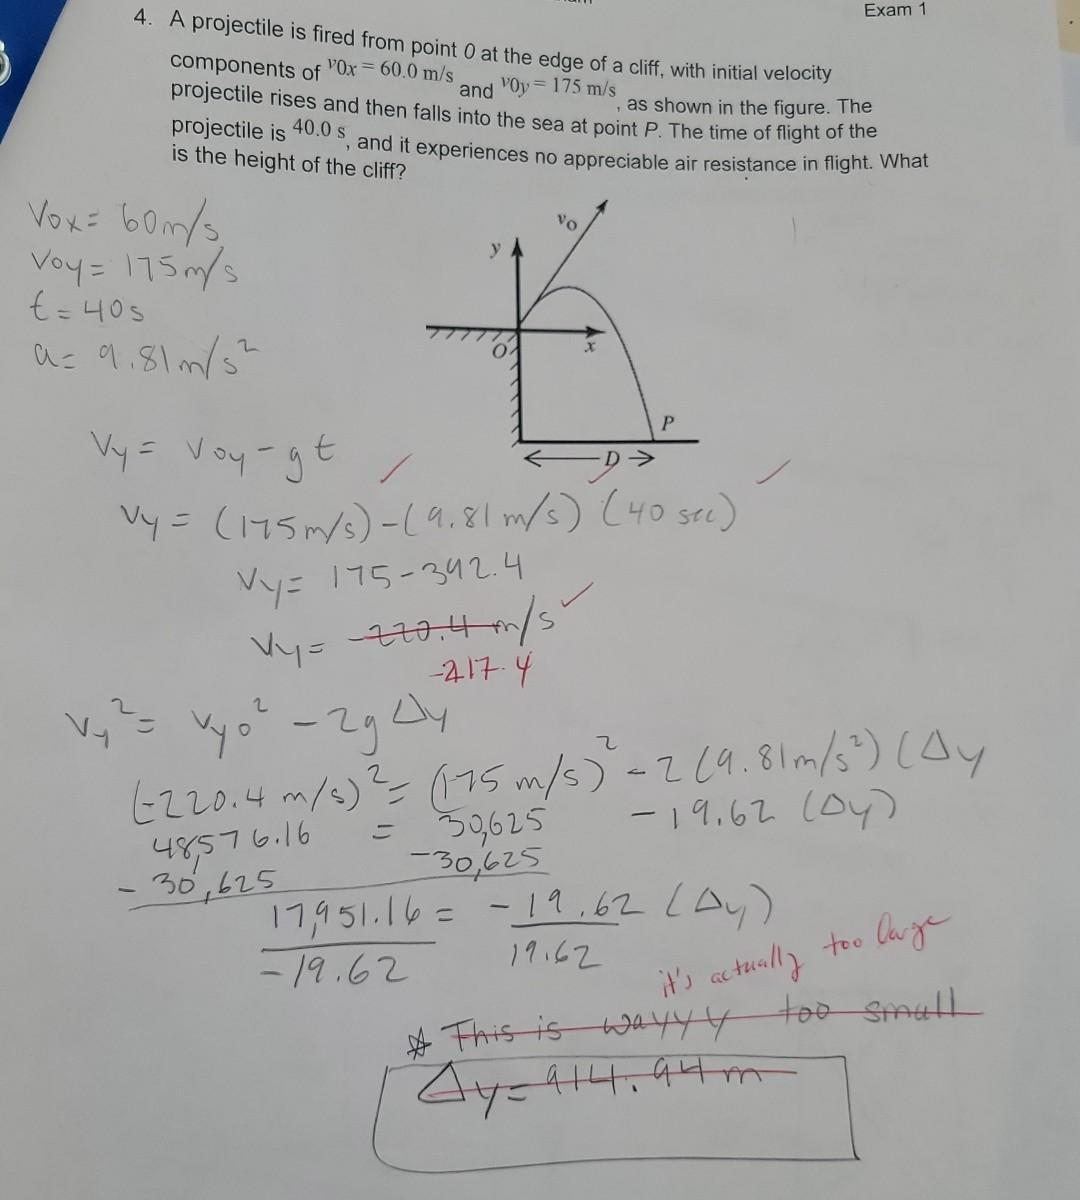 Exam 1
4. A projectile is fired from point 0 at the edge of a cliff, with initial velocity
components of v0x = 60.0 m/s and v0y = 175 m/s , as shown in the figure. The
projectile rises and then falls into the sea at point P. The time of flight of the
projectile is 40.0 s , and it experiences no appreciable air resistance in flight. What
is the height of the cliff?
Vox = 60m/s
Voy = 175m/s
t = 40s
a = 9.81m/s²
v0
y
O
x
P
D
Vy = Voy - gt
Vy = (175m/s) - (9.81 m/s) (40 sec)
Vy = 175 - 392.4
Vy = -220.4 m/s
-217.4
Vy² = Vyo² - 2gΔy
(-220.4 m/s)² = (175 m/s)² - 2 (9.81m/s²) (Δy
48,576.16 = 30,625 - 19.62 (Δy)
- 30,625 -30,625
17,951.16 = -19.62 (Δy)
-19.62 19.62
it's actually too large
This is wayyy too small
Δy = 914.94 m